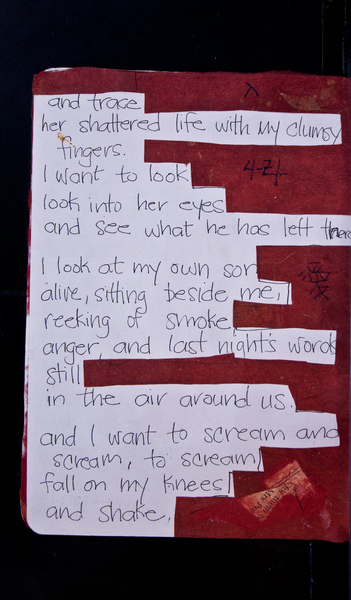 and trace
her shattered life with my clumsy
fingers.
I want to look
look into her eyes
and see what he has left there
I look at my own son
alive, sitting beside me,
reeking of smoke
anger, and last night's words
still
in the air around us.
and I want to scream and
scream, to scream,
fall on my knees
and shake,